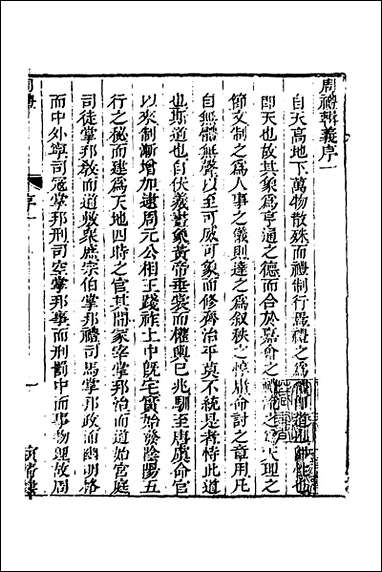 周禮輯義序一
自天高地下萬物散殊而禮制行焉禮之爲禮卽道也卽性也
卽天也故其象爲亨通之德而合於嘉會之 之爲天理之
節文制之爲人事之儀則達之爲叙秩之惇庸命討之章用凡
自無體無聲以至可威可象而修齊治平莫不統是者恃此道
也斯道也自伏羲畫象黃帝垂裳而權輿已兆馴至唐虞命官
以來制漸增加逮周元公相王踐祚上中旣宅實始發陰陽五
行之秘而建爲天地四時之官其間冢宰掌邦治而道始官庭
司徒掌邦敎而道敷衆庶宗伯掌邦禮司馬掌邦政而幽明洽
而中外寧司寇掌邦刑司空掌邦事而刑罰中而事物理故周
序一
一